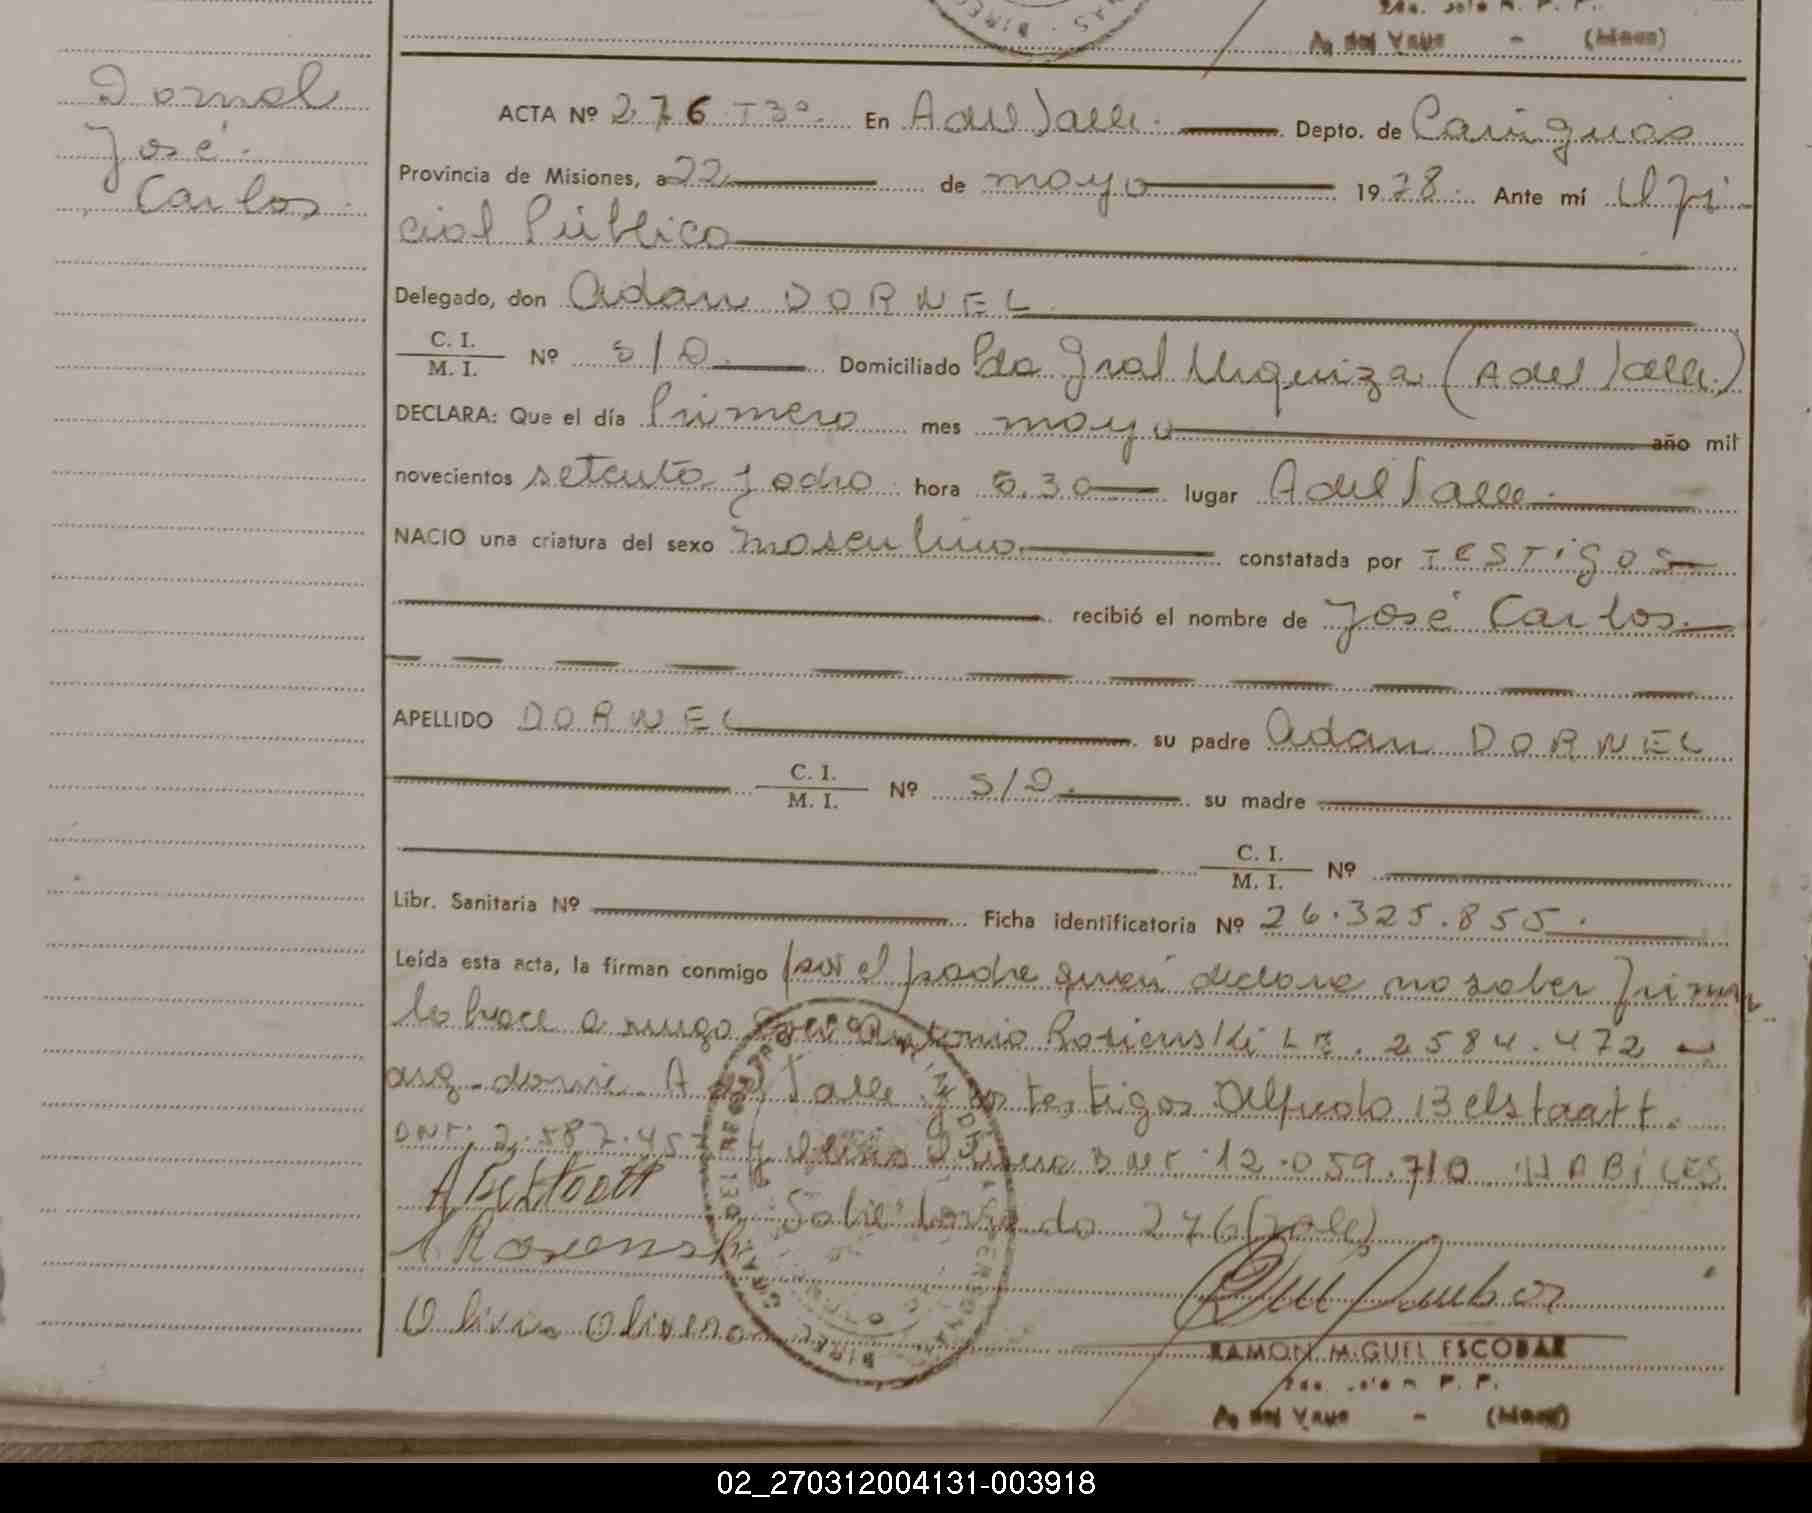 2do. Jefe R. P. P.
A. del Valle - (Mnes)
Dornel
José
Carlos
ACTA Nº 276 T3º. En A del Valle. Depto. de Cainguas
Provincia de Misiones, a 22 de mayo 1978. Ante mí Ofi
cial Público
Delegado, don Adan DORNEL
C. I.
M. I. Nº S/D. Domiciliado Pdo Gral Urquiza (A del Valle.)
DECLARA: Que el día Primero mes mayo año mil
novecientos setenta y ocho hora 5.30 lugar A del Valle.
NACIO una criatura del sexo masculino constatada por TESTIGOS
recibió el nombre de José Carlos.
APELLIDO DORNEL su padre Adan DORNEL
C. I.
M. I. Nº S/D. su madre
C. I.
M. I. Nº
Libr. Sanitaria Nº Ficha identificatoria Nº 26.325.855.
Leída esta acta, la firman conmigo por el padre quien declara no saber firmar
lo hace a ruego Antonio L E. 2584.472
arg. domic. A del Valle y los testigos Alfredo Belstaatt.
DNI: 2.587.45 y DNI. 12.059.710 HABILES
Sobre borrado 276 (vale)
Olivera
RAMON MIGUEL ESCOBAR
2do. Jefe R. P. P.
A. del Valle - (Mnes)
02_270312004131-003918